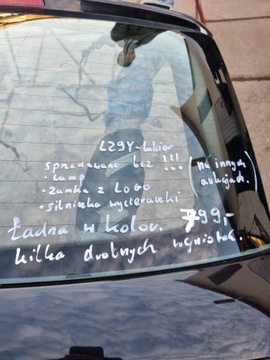 LZ9Y-lakier
sprzedawana bez !!! (na innych
• lamp aukcjach.)
• zamka z LOGO
• silniczka wycieraczki
Ładna w kolor. 799,-
kilka drobnych wgniotek